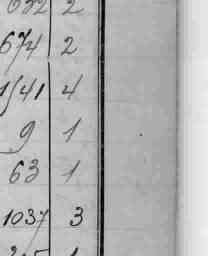 674 2
1541 4
9 1
63 1
1037 3